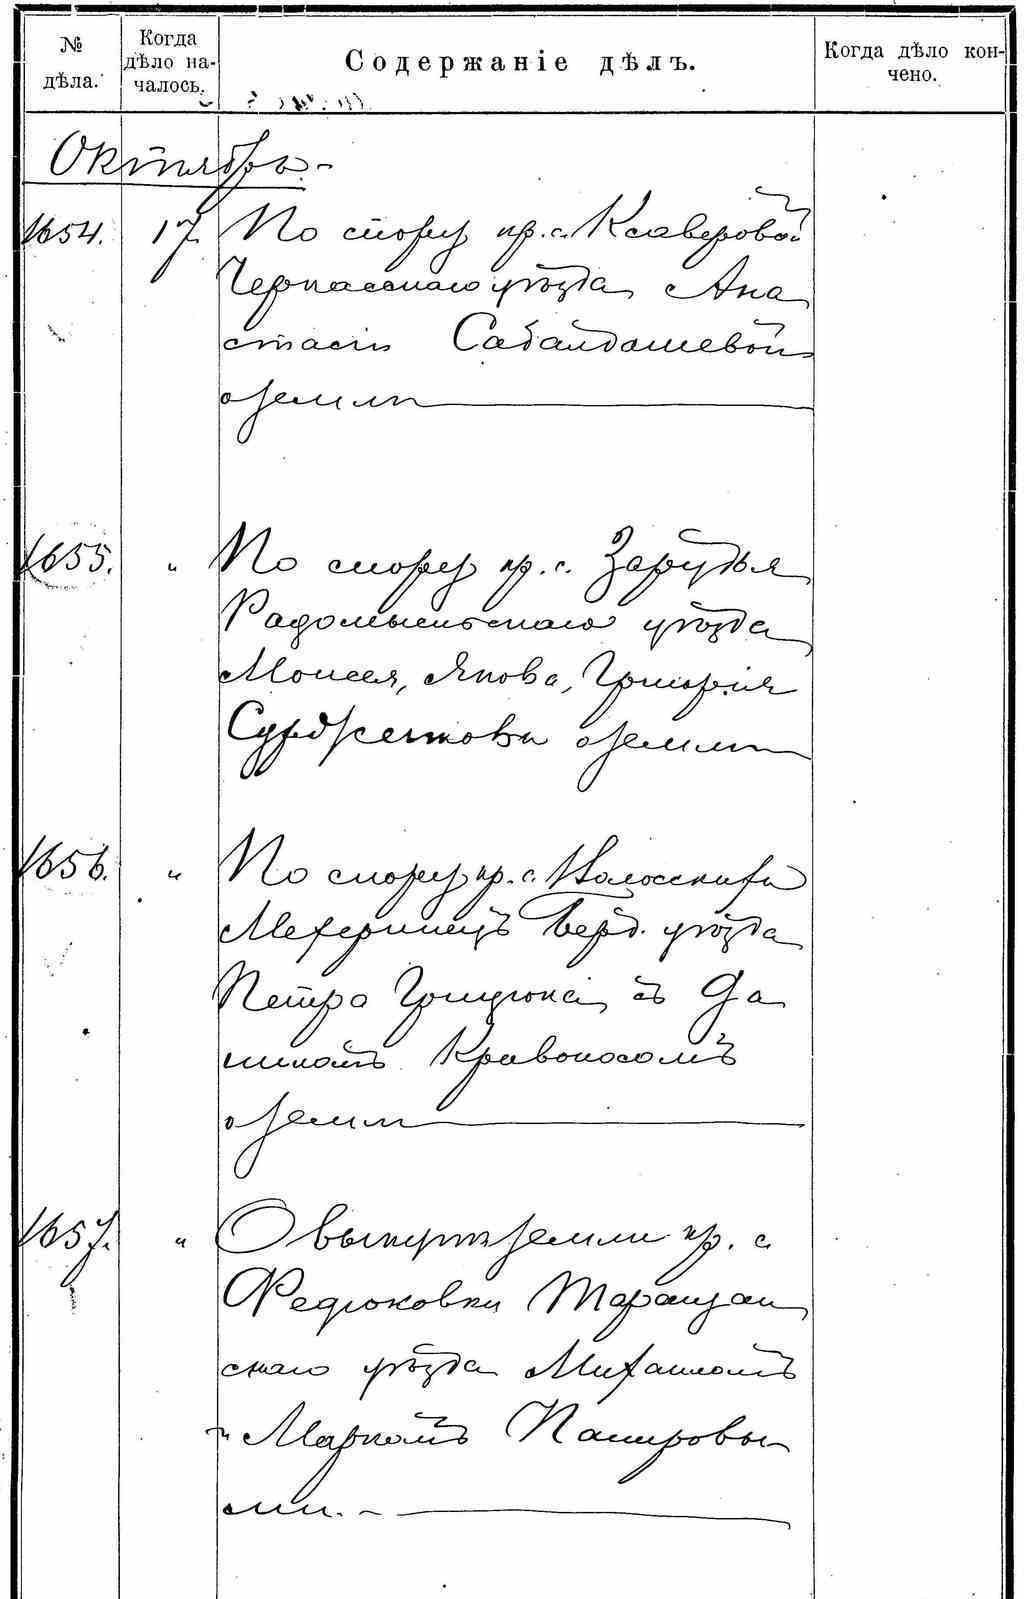 № дѣла.
Когда дѣло началось.
Содержаніе дѣлъ.
Когда дѣло кончено.
Октябрь.
1654. 17. По спору кр. с. Ксаверовой
Черкасскаго уѣзда Ана
стасіи Сабалдашевой
о землѣ
1655. " По спору кр. с. Зарудья
Радомысльскаго уѣзда
Моисея, Якова, Григорія
о землѣ
1656. " По спору кр. с. Волосскихъ
Мехеринецъ Берд. уѣзда
Петра Грицюка съ Да
ниломъ Кривоносомъ
о землѣ
1657. " О выкупѣ земли кр. с.
Федюковки Таращан
скаго уѣзда Михаиломъ
и Маркомъ Папировы
ми.